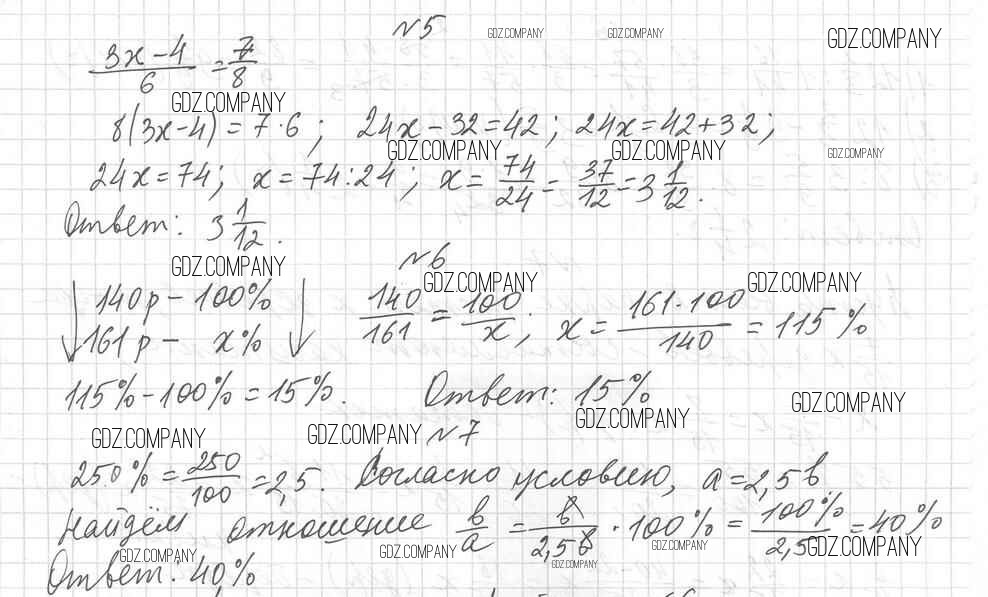 №5
GDZ.COMPANY GDZ.COMPANY GDZ.COMPANY
(3x-4)/6 = 7/8
GDZ.COMPANY
8(3x-4) = 7·6 ; 24x-32=42 ; 24x=42+32 ;
GDZ.COMPANY GDZ.COMPANY GDZ.COMPANY
24x=74 ; x=74:24 ; x= 74/24 = 37/12 = 3 1/12 .
Ответ: 3 1/12 .
№6
GDZ.COMPANY GDZ.COMPANY GDZ.COMPANY
↓ 140р - 100% ↓ 140/161 = 100/x ; x = 161·100/140 = 115%
161р - x%
115%-100% = 15%. Ответ: 15%
GDZ.COMPANY GDZ.COMPANY
GDZ.COMPANY GDZ.COMPANY №7
250% = 250/100 = 2,5. Согласно условию, a=2,5b
Найдём отношение b/a = b/2,5b · 100% = 100%/2,5 = 40%
GDZ.COMPANY GDZ.COMPANY GDZ.COMPANY GDZ.COMPANY
GDZ.COMPANY
Ответ: 40%